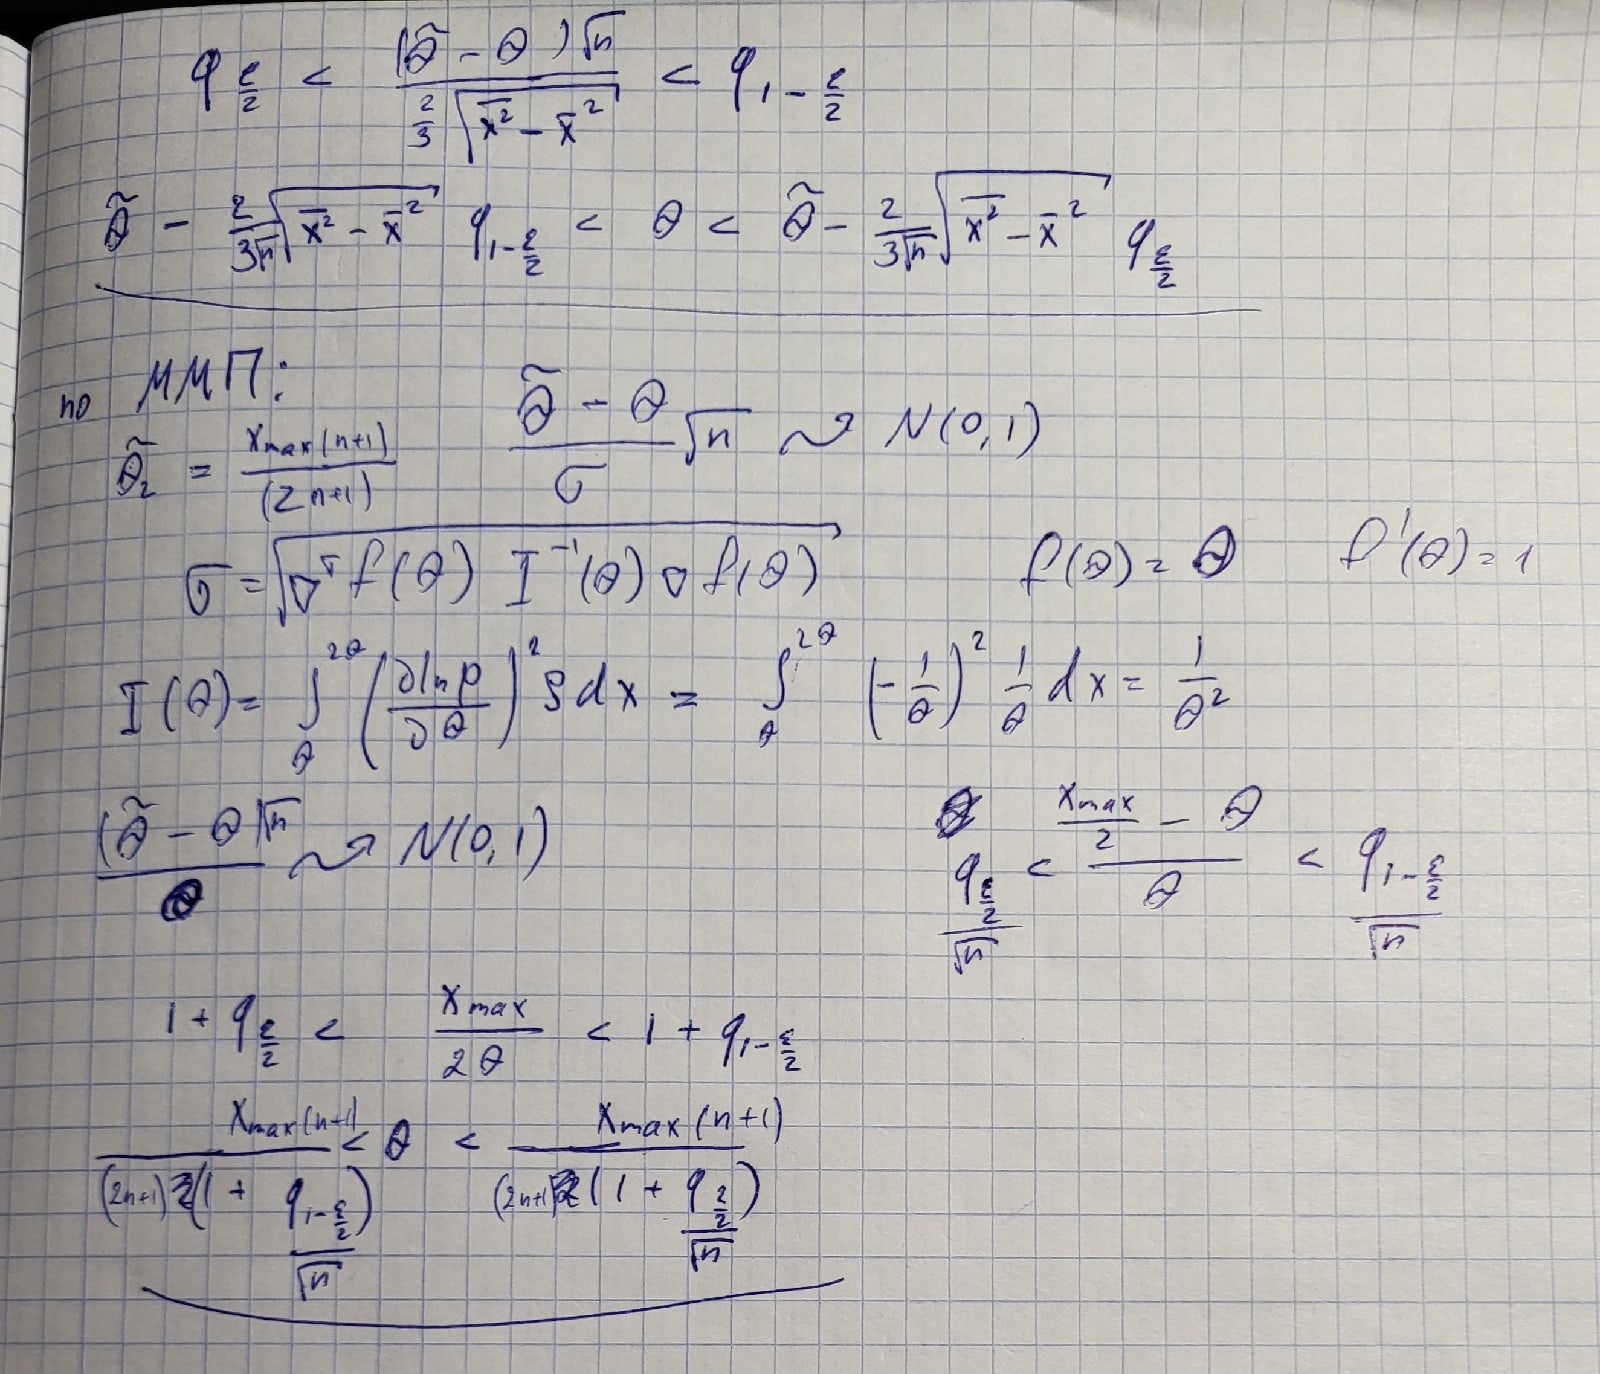 q_{ε/2} < ((θ̃ - θ)√n) / (2/3 √(x̄² - x̄²)) < q_{1-ε/2}
θ̃ - 2/(3√n) √(x̄² - x̄²) q_{1-ε/2} < θ < θ̃ - 2/(3√n) √(x̄² - x̄²) q_{ε/2}
по ММП:
θ̃₂ = x_max(n+1) / (2n+1)    (θ̃ - θ)/σ √n ⤳ N(0,1)
σ = √(∇ᵀf(θ) I⁻¹(θ) ∇f(θ))    f(θ) = θ    f'(θ) = 1
I(θ) = ∫_θ^{2θ} (∂ln p/∂θ)² ρ dx = ∫_θ^{2θ} (-1/θ)² 1/θ dx = 1/θ²
((θ̃ - θ)√n)/θ ⤳ N(0,1)    q_{ε/2}/√n < (x_max/2 - θ)/θ < q_{1-ε/2}/√n
1 + q_{ε/2} < x_max/(2θ) < 1 + q_{1-ε/2}
x_max(n+1) / ((2n+1)(1 + q_{1-ε/2}/√n)) < θ < x_max(n+1) / ((2n+1)(1 + q_{ε/2}/√n))